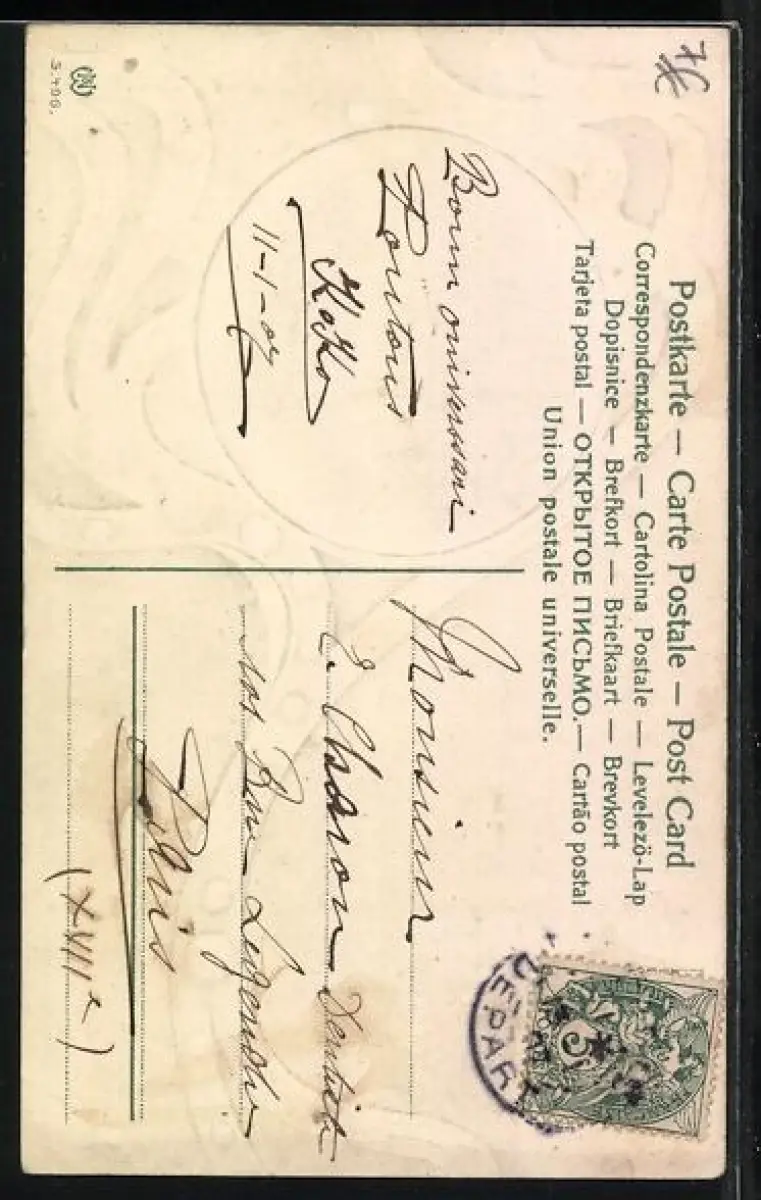 Postkarte — Carte Postale — Post Card
Correspondenzkarte — Cartolina Postale — Levelező-Lap
Dopisnice — Brefkort — Briefkaart — Brevkort
Tarjeta postal — ОТКРЫТОЕ ПИСЬМО. — Cartão postal
Union postale universelle.
Bonn oniverssairi
KoKo
11-1-07
Monsieur
E. Chason Dentiste
Rue Legendre
Paris
(XVII e)
DEPART
5
S.400.